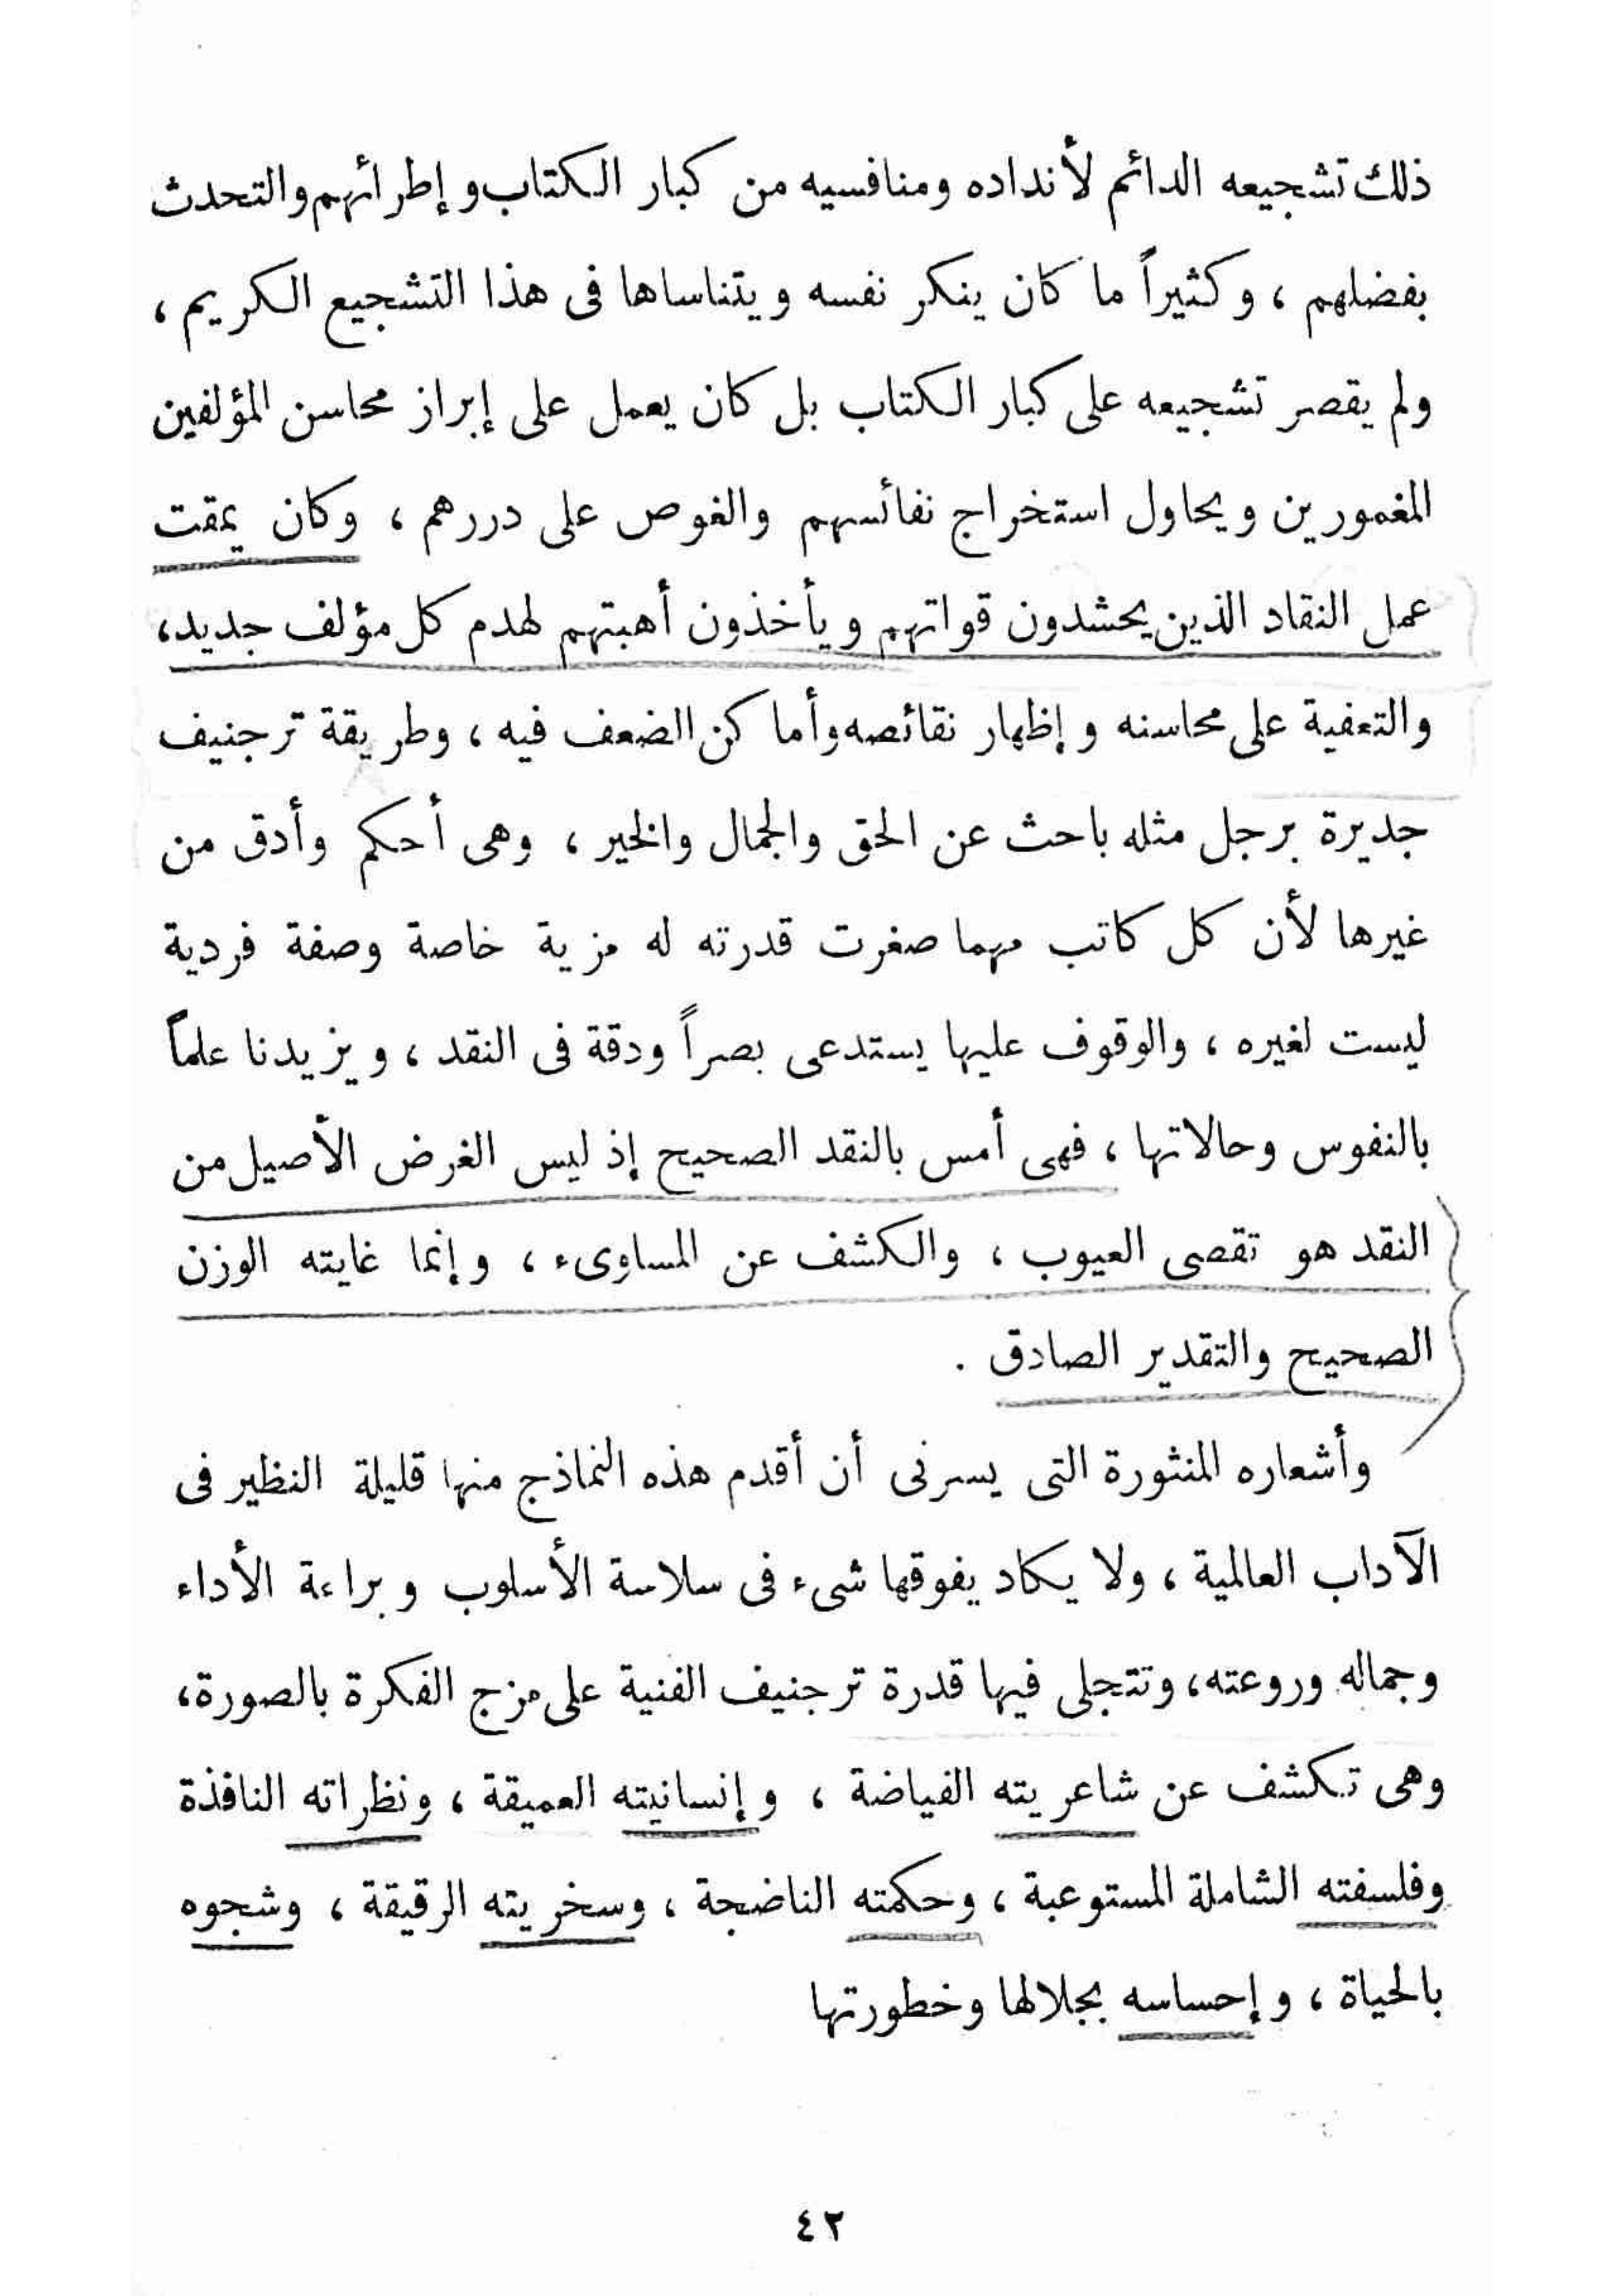 ذلك تشجيعه الدائم لأنداده ومنافسيه من كبار الكتاب وإطرائهم والتحدث
بفضلهم ، وكثيراً ما كان ينكر نفسه ويتناساها فى هذا التشجيع الكريم ،
ولم يقصر تشجيعه على كبار الكتاب بل كان يعمل على إبراز محاسن المؤلفين
المغمورين ويحاول استخراج نفائسهم والغوص على دررهم ، وكان يمقت
عمل النقاد الذين يحشدون قواتهم ويأخذون أهبتهم لهدم كل مؤلف جديد،
والتعفية على محاسنه وإظهار نقائصه وأماكن الضعف فيه ، وطريقة ترجنيف
جديرة برجل مثله باحث عن الحق والجمال والخير ، وهى أحكم وأدق من
غيرها لأن كل كاتب مهما صغرت قدرته له مزية خاصة وصفة فردية
ليست لغيره ، والوقوف عليها يستدعى بصراً ودقة فى النقد ، ويزيدنا علماً
بالنفوس وحالاتها ، فهى أمس بالنقد الصحيح إذ ليس الغرض الأصيل من
النقد هو تقصى العيوب ، والكشف عن المساوىء ، وإنما غايته الوزن
الصحيح والتقدير الصادق .
وأشعاره المنثورة التى يسرنى أن أقدم هذه النماذج منها قليلة النظير فى
الآداب العالمية ، ولا يكاد يفوقها شىء فى سلاسة الأسلوب وبراءة الأداء
وجماله وروعته، وتتجلى فيها قدرة ترجنيف الفنية على مزج الفكرة بالصورة،
وهى تكشف عن شاعريته الفياضة ، وإنسانيته العميقة ، ونظراته النافذة
وفلسفته الشاملة المستوعبة ، وحكمته الناضجة ، وسخريته الرقيقة ، وشجوه
بالحياة ، وإحساسه بجلالها وخطورتها
٤٢